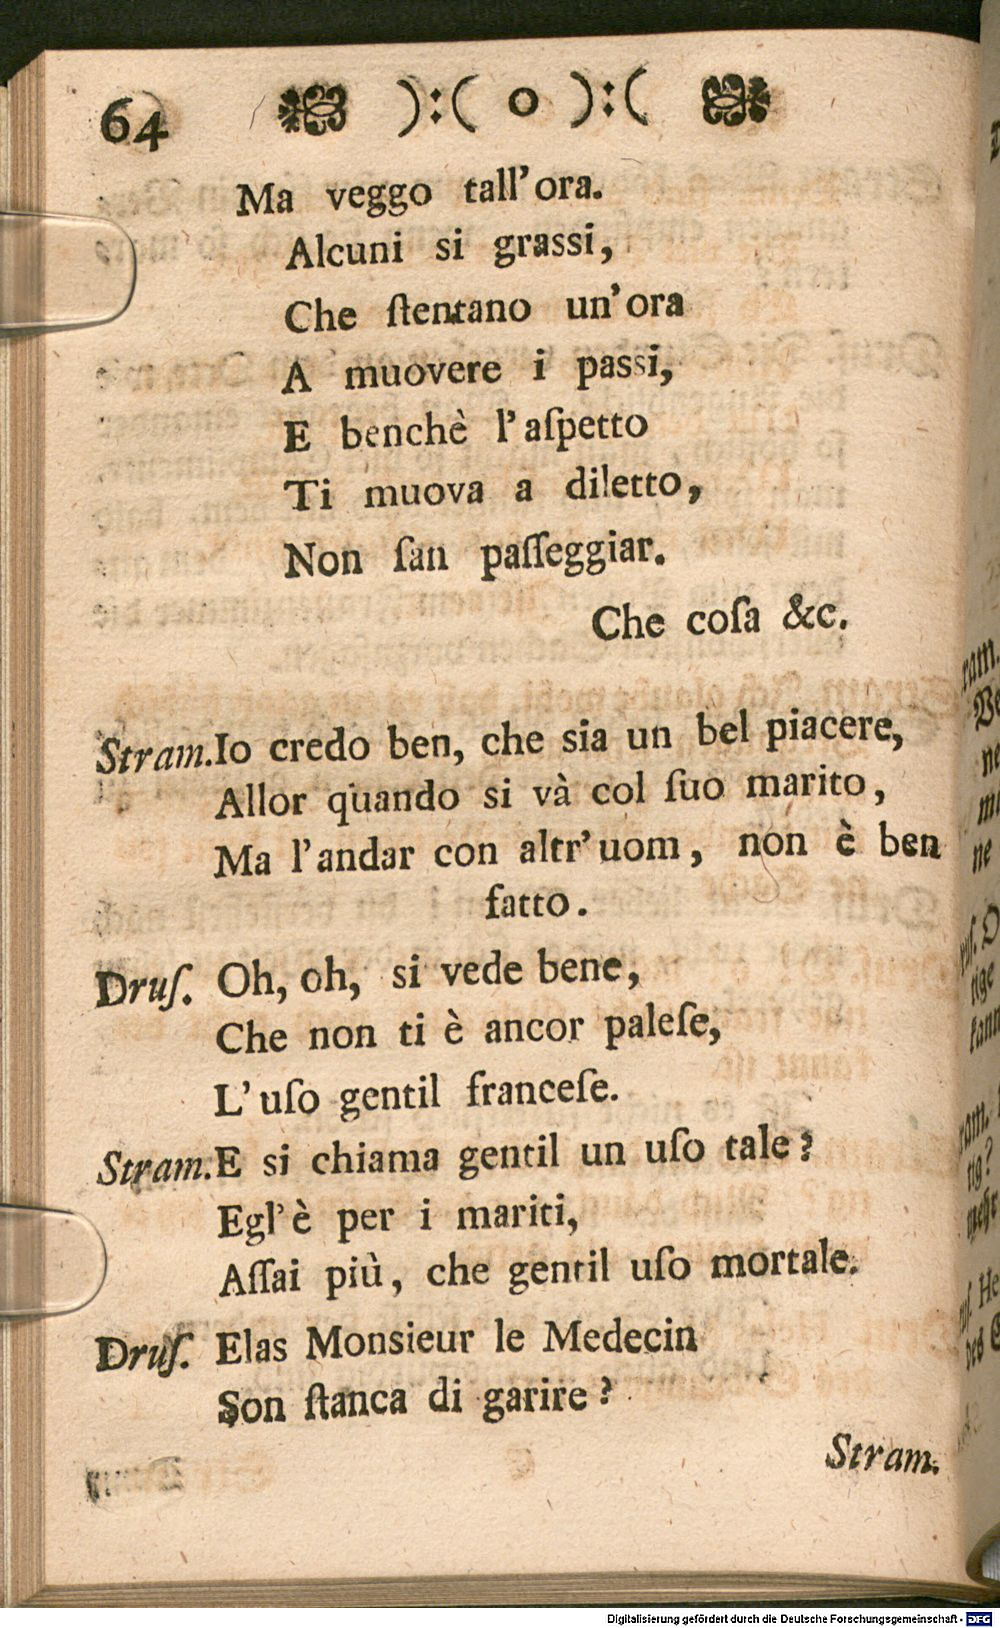 64 ):( o ):(
Ma veggo tall'ora.
Alcuni si grassi,
Che ſtentano un'ora
A muovere i passi,
E benchè l'aſpetto
Ti muova a diletto,
Non ſan paſſeggiar.
Che coſa &c.
Stram. Io credo ben, che sia un bel piacere,
Allor quando si và col ſuo marito,
Ma l'andar con altr'uom, non è ben
fatto.
Druſ. Oh, oh, si vede bene,
Che non ti è ancor paleſe,
L'uſo gentil franceſe.
Stram. E si chiama gentil un uſo tale?
Egl'è per i mariti,
Aſſai più, che gentil uſo mortale.
Druſ. Elas Monsieur le Medecin
Son ſtanca di garire?
Stram.
Digitalisierung gefördert durch die Deutsche Forschungsgemeinschaft - DFG